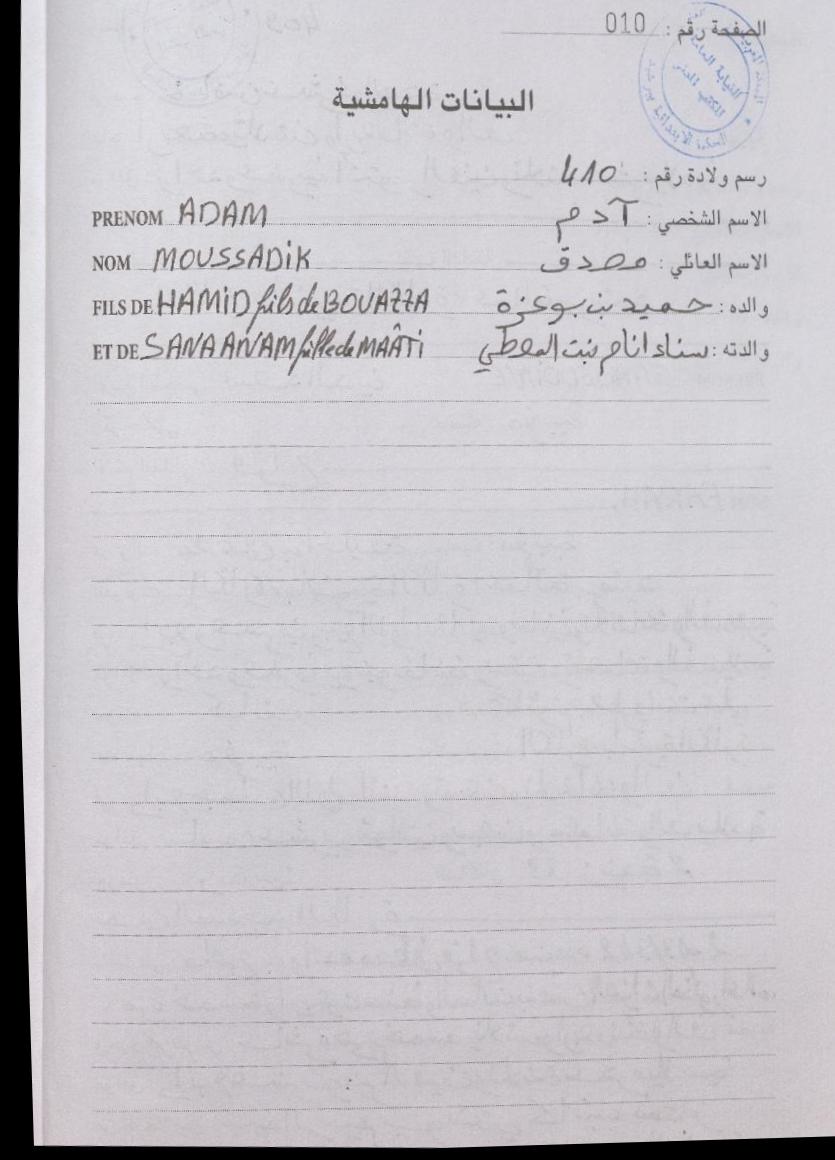 الصفحة رقم : 010
البيانات الهامشية
رسم ولادة رقم : 410
الاسم الشخصي : آدم
PRENOM ADAM
الاسم العائلي : مصدق
NOM MOUSSADIK
والده : حميد بن بوعزة
FILS DE HAMID fils de BOUAZZA
والدته : سناء انام بنت المعطي
ET DE SANAA ANAM fille de MAÂTI